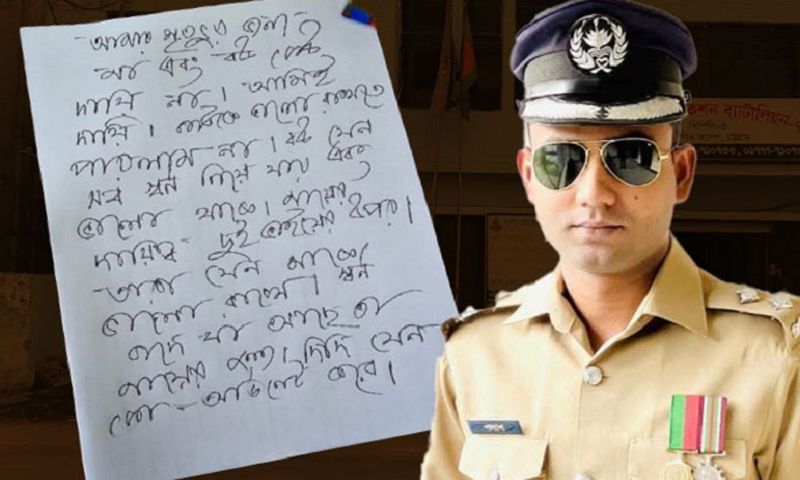 আমার মৃত্যুর জন্য
মা এবং বউ কেউ
দায়ী না। আমিই
দায়ী। কাউকে ভালো রাখতে
পারলাম না। বউ যেন
সব স্বর্ণ নিয়ে যায় এবং
ভালো থাকে। মায়ের
দায়িত্ব দুই ভাইয়ের উপর।
তারা যেন মাকে
ভালো রাখে। স্বর্ণ
বাদে যা আছে তা
মায়ের জন্য। দিদি যেন
কো-অর্ডিনেট করে।
কশন ব্যাটালিয়ন-
পলাশ